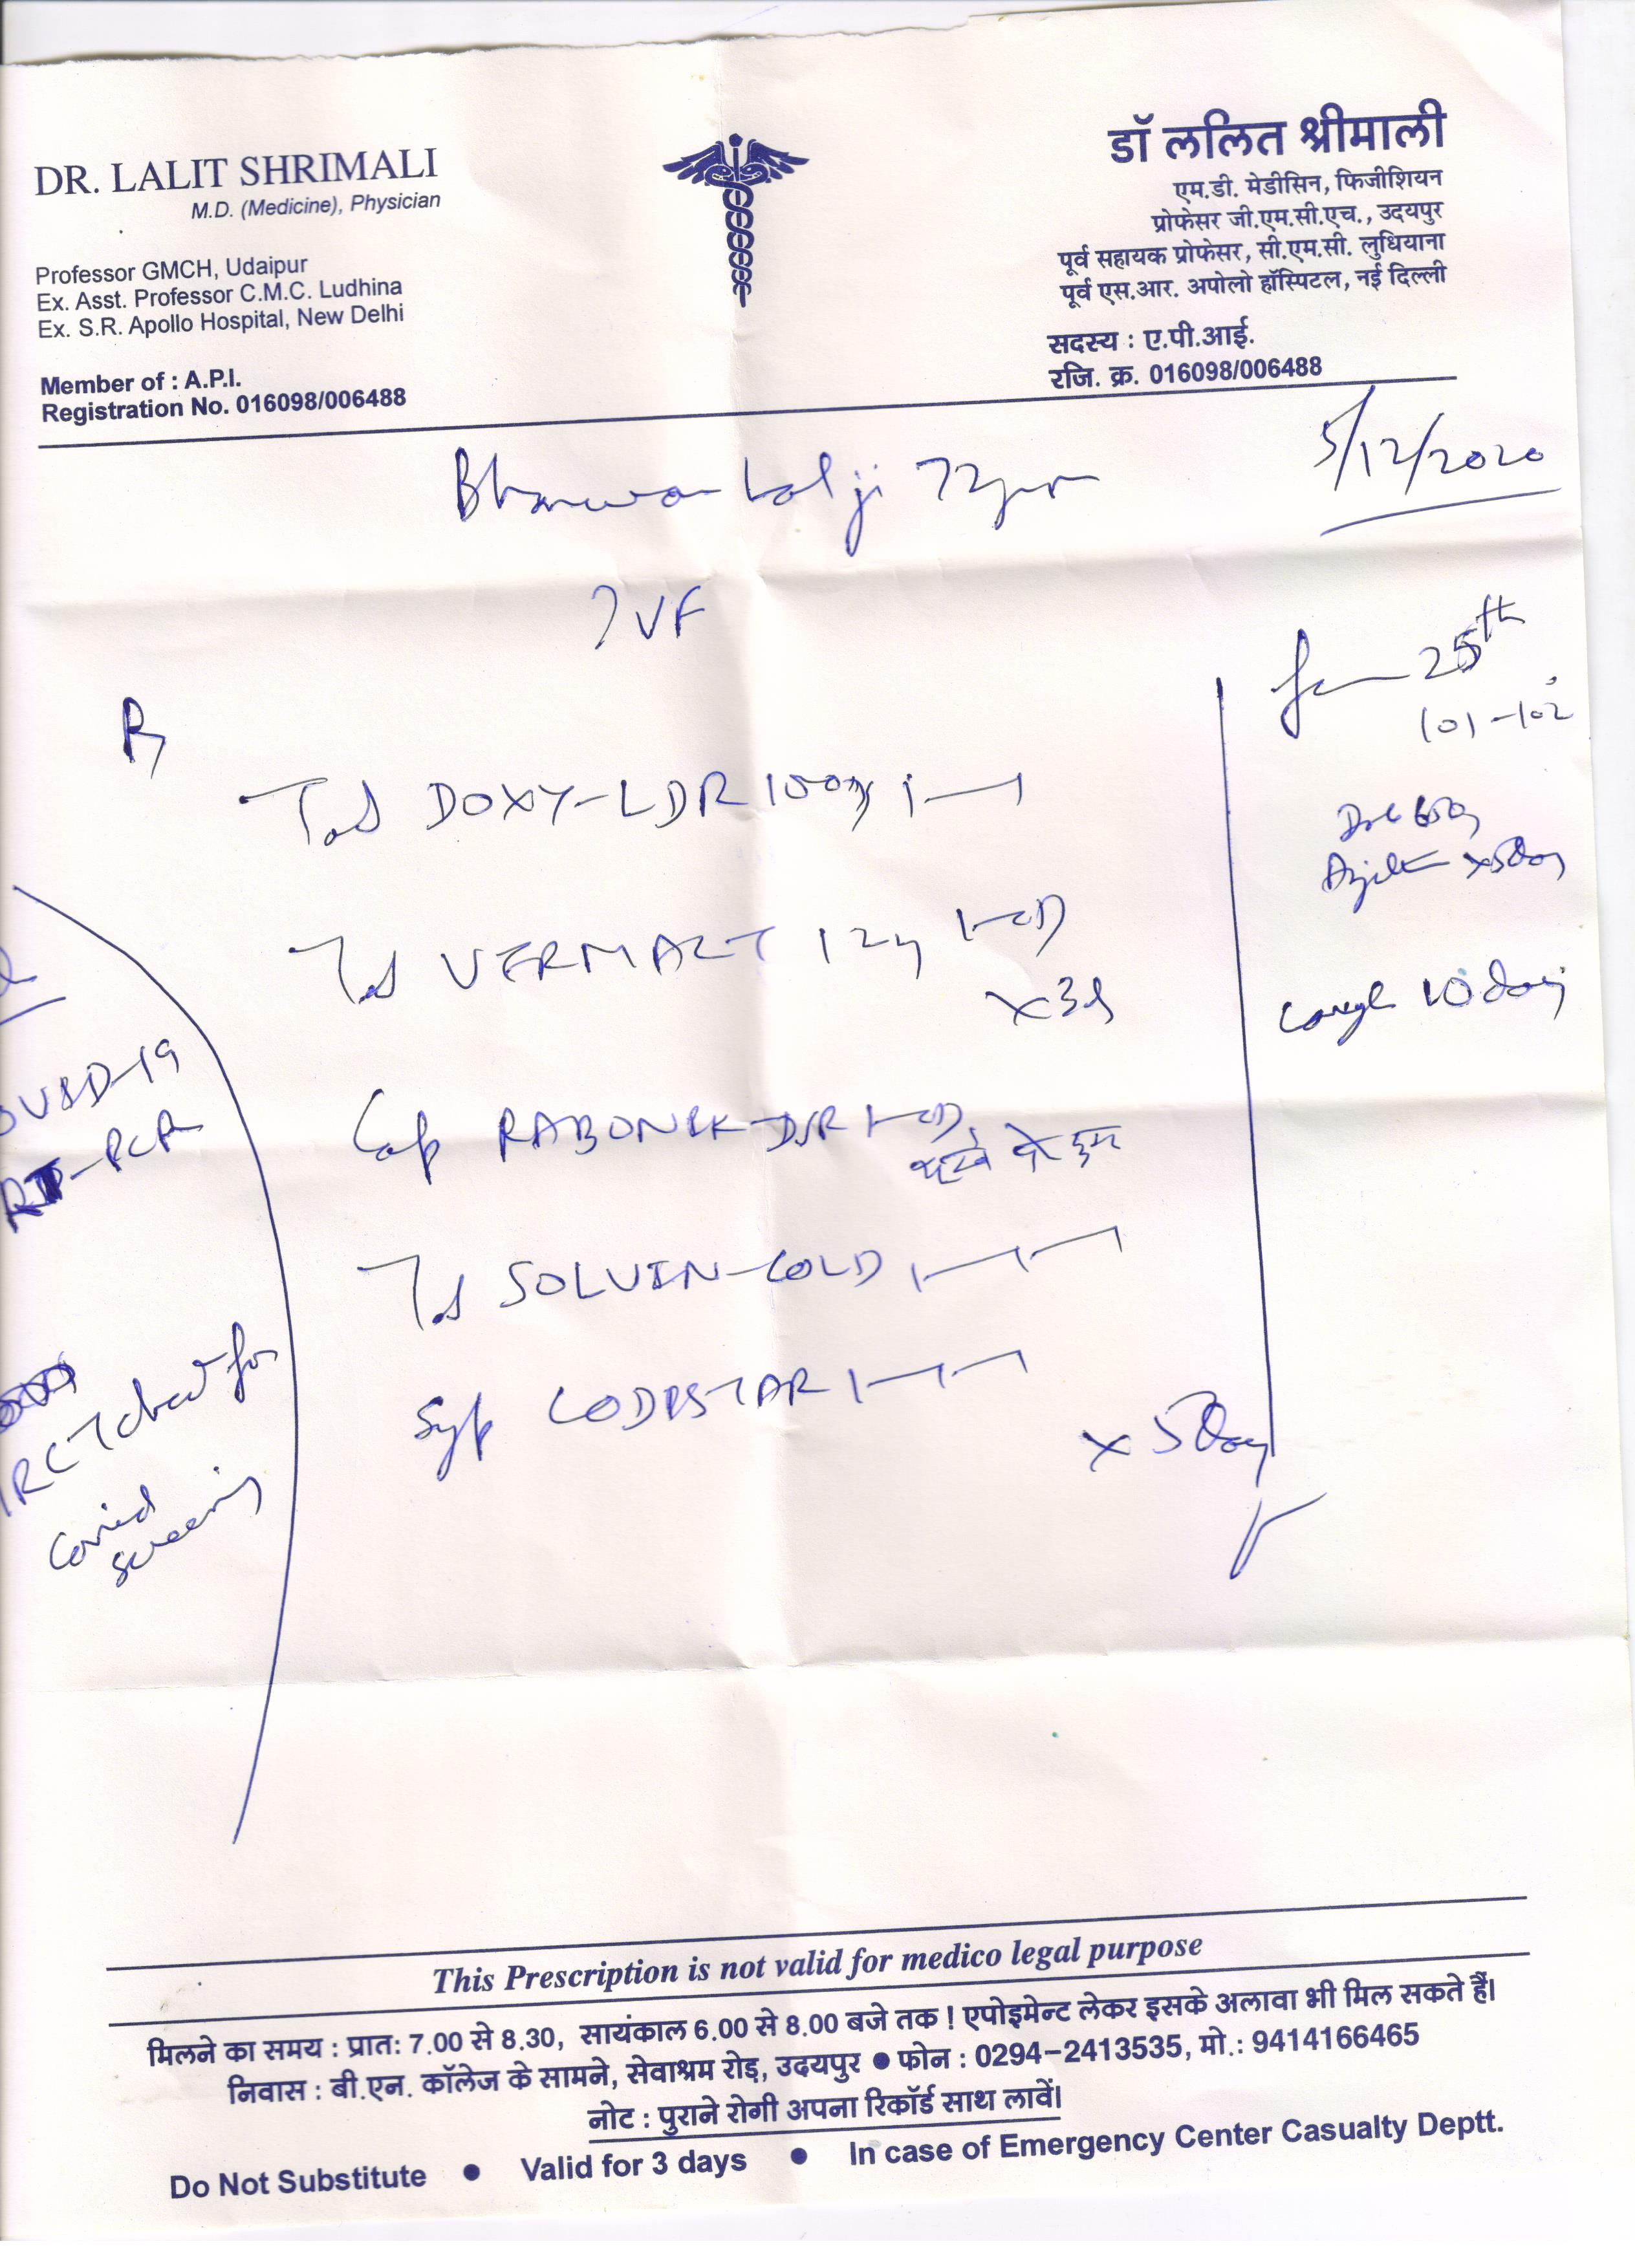 DR. LALIT SHRIMALI
M.D. (Medicine), Physician
Professor GMCH, Udaipur
Ex. Asst. Professor C.M.C. Ludhina
Ex. S.R. Apollo Hospital, New Delhi
Member of : A.P.I.
Registration No. 016098/006488
डॉ ललित श्रीमाली
एम.डी. मेडीसिन, फिजीशियन
प्रोफेसर जी.एम.सी.एच., उदयपुर
पूर्व सहायक प्रोफेसर, सी.एम.सी. लुधियाना
पूर्व एस.आर. अपोलो हॉस्पिटल, नई दिल्ली
सदस्य : ए.पी.आई.
रजि. क्र. 016098/006488
5/12/2020
Lal ji 72
?VF
25th
101-102
Rx
Tab DOXY-LDR 100mg 1—1
x5day
Tab 12mg 1-OD
x3d
Cough 10 days
Cap DSR 1-OD
Tab SOLVIN-COLD 1—1—1
Syp CODISTAR 1—1—1
x 5day
OVID-19
RT-PCR
RCT chest for
Covid
screening
This Prescription is not valid for medico legal purpose
मिलने का समय : प्रातः 7.00 से 8.30, सायंकाल 6.00 से 8.00 बजे तक ! एपोइमेन्ट लेकर इसके अलावा भी मिल सकते हैं।
निवास : बी.एन. कॉलेज के सामने, सेवाश्रम रोड़, उदयपुर ● फोन : 0294-2413535, मो.: 9414166465
नोट : पुराने रोगी अपना रिकॉर्ड साथ लावें।
Do Not Substitute ● Valid for 3 days ● In case of Emergency Center Casualty Deptt.